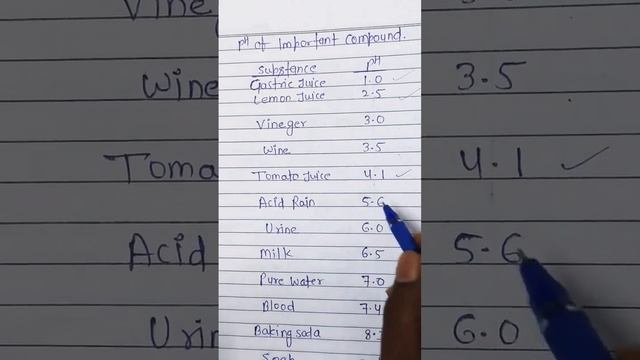 pH of Important Compound.
Substance pH
Gastric Juice 1.0
Lemon Juice 2.5
Vineger 3.0
Wine 3.5
Tomato Juice 4.1
Acid Rain 5.6
Urine 6.0
Milk 6.5
Pure water 7.0
Blood 7.4
Baking soda 8.
Soap